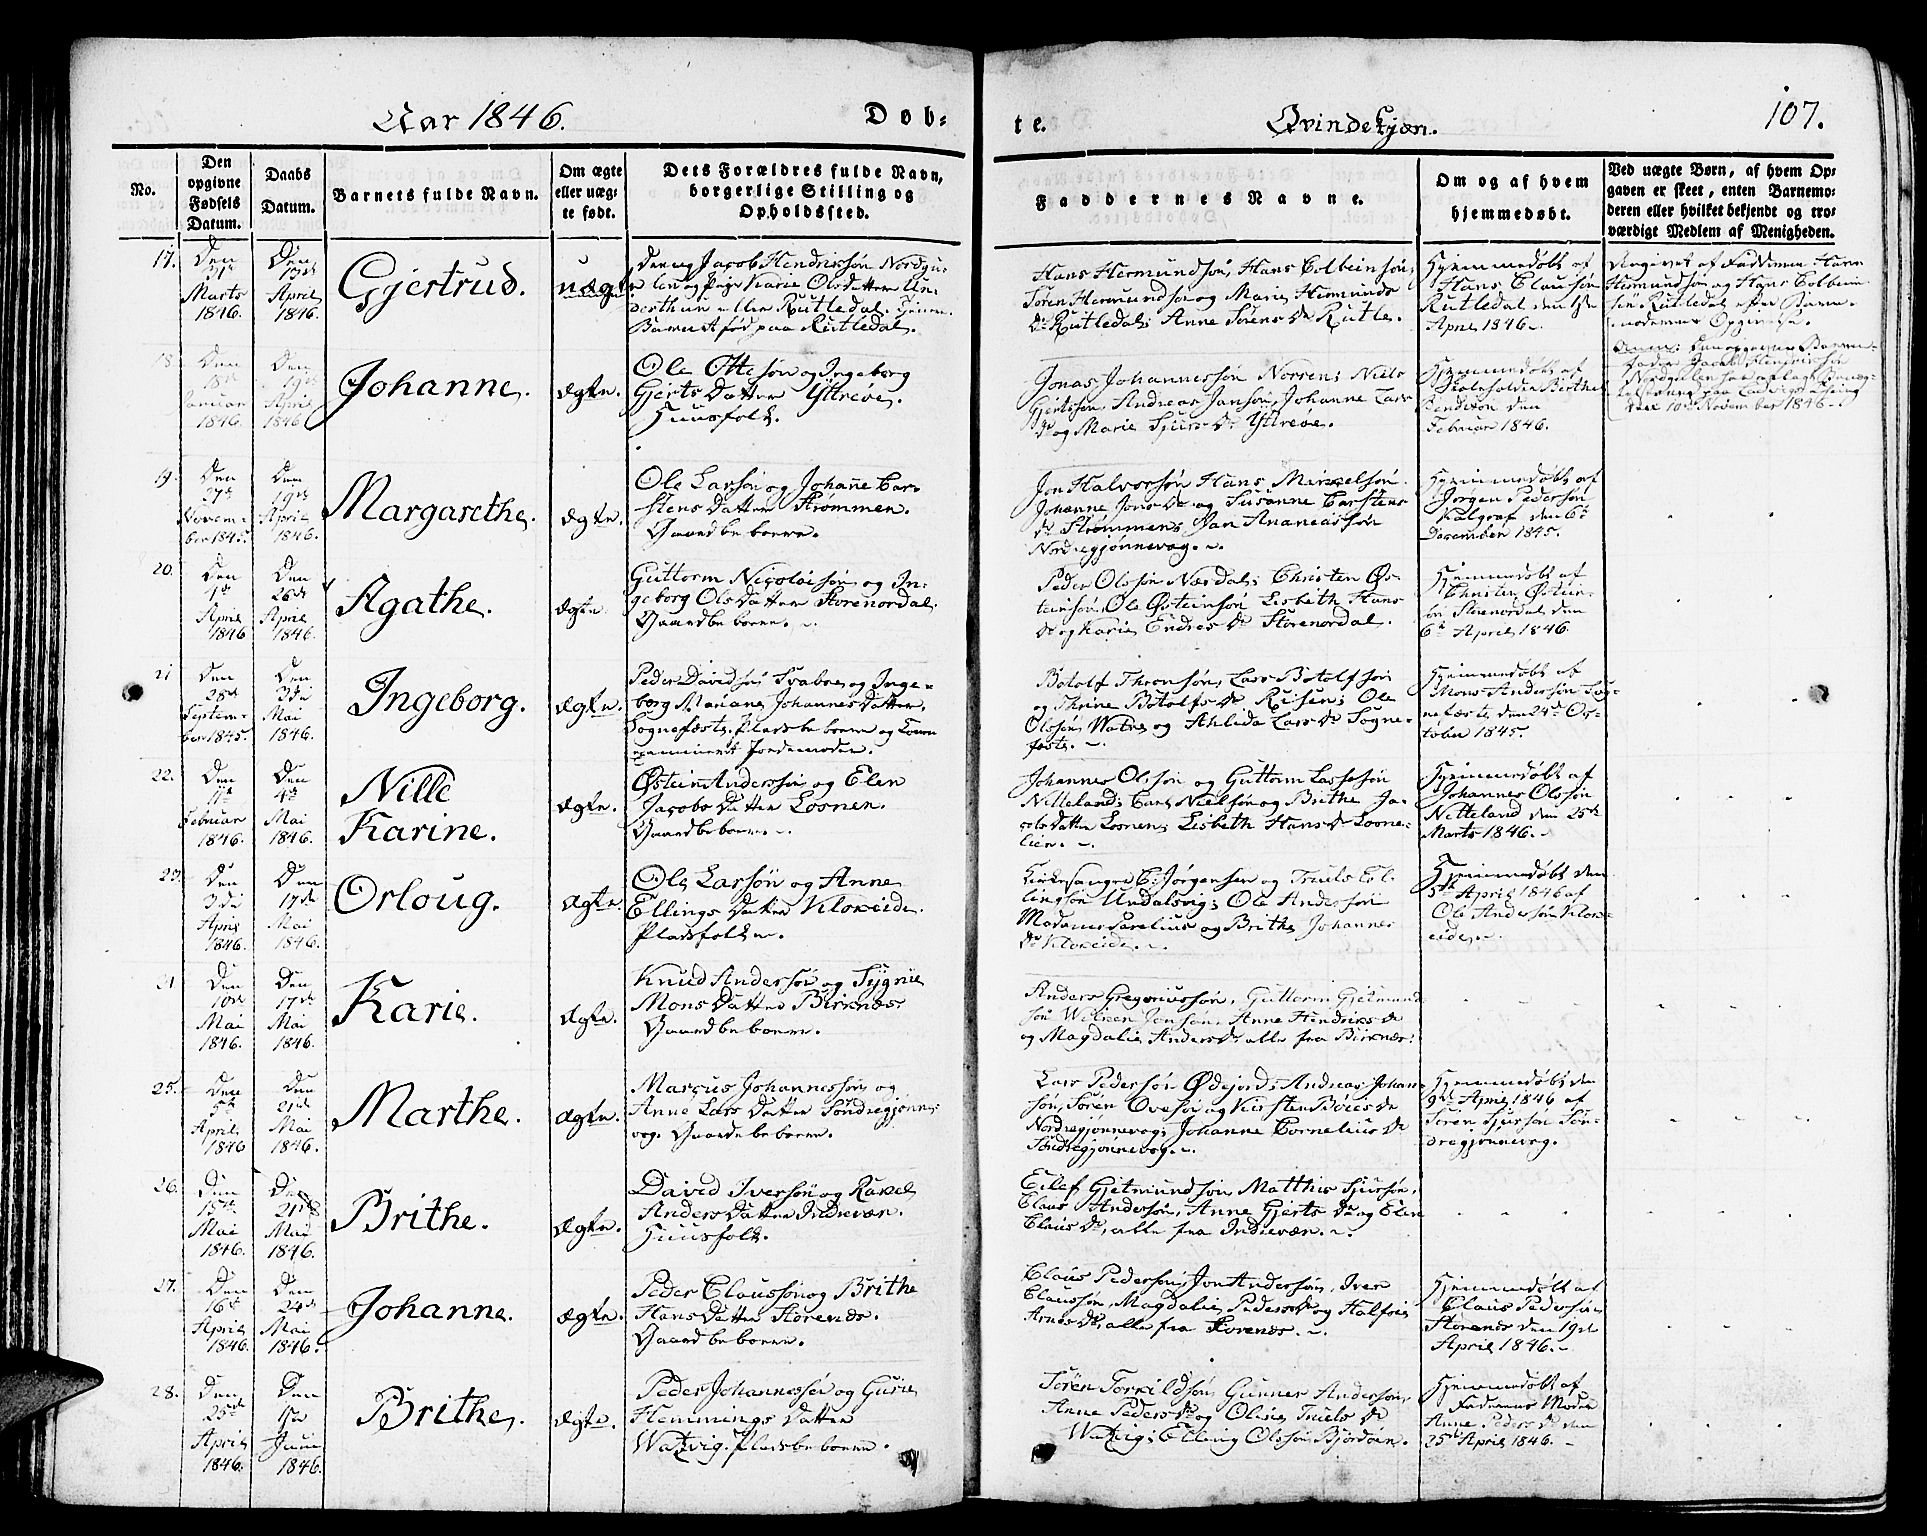 Aar 1846.
Døb-
te.
Qvindekjøn.
107.
No.
Den opgivne Fødsels Datum.
Daabs Datum.
Barnets fulde Navn.
Om ægte eller uægte født.
Dets Forældres fulde Navn, borgerlige Stilling og Opholdssted.
Faddernes Navne.
Om og af hvem hjemmedøbt.
Ved uægte Børn, af hvem Opgaven er skeet, enten Barnemoderen eller hvilket bekjendt og troværdigt Medlem af Menigheden.
17.
Den 31te Marts 1846.
Den 13de April 1846.
Gjertrud.
uægte.
Jacob Hendriksøn
og Pige Karie Olsdatter
Rutledal.
Barnet fød paa Rutledal.
Hans Hermundsøn, Hans Colbeinsøn,
Søren Hermundsøn og Marie Hermunds
Dr Rutledal; Anne Sørens Dr Rutle.
Hjemmedøbt af
Hans Clausøn
Rutledal den 1ste
April 1846.
Angivet af Fadderne Hans
Hermundsøn og Hans Colbein-
søn Rutledal efter Barne-
moderens Opgivelse.
Jacob Hendriksøn
10de November 1846.
18
Den Januar 1846.
Den 19de April 1846
Johanne.
ægte.
Ole Ottesøn og Ingeborg
Gjerts Datter Yttrøve.
Huusfolk.
Jonas Johannessøn Norren; Niels
Gjertsøn, Andreas Jansøn, Johanne Lars
Dr og Marie Sjurs Dr Yttrøve.
Hjemmedøbt af
Skoleholder Berthel
Bendixen den
Februar 1846.
19.
Den 27de November 1845.
Den 19de April 1846.
Margarethe.
ægte.
Ole Larsøn og Johanne Car-
stens Datter Strømmen.
Gaardbeboere.
Jon Halvorsøn Hans Mikkelsøn
Johanne Jons Dr og Susanne Carstens
Dr Strømmen; Jan Ananiassøn
Nordregjønnevog.
Hjemmedøbt af
Jørgen Pedersøn
Kalgraf den 6te
December 1845.
20.
Den 1ste April 1846
Den 26de April 1846.
Agathe.
ægte.
Guttorm Nicolaisøn og In-
geborg Ols Datter Storenordal.
Gaardbeboere.
Peder Olssøn Nordal; Christen Øs-
teinsøn, Ole Østeinsøn Lisbeth Hans
Dr og Karie Endres Dr Storenordal.
Hjemmedøbt af
Christen Østein-
søn Storenordal den
6te April 1846.
21
Den 28de September 1845.
Den 3die Mai 1846.
Ingeborg.
ægte.
Peder Davidsøn og Inge-
borg Mariane Johannes Datter,
Sognefæste. Pladsbeboere og
examineret Jordemoder.
Botolf Thronsøn, Lars Botolfsøn
og Thrine Botolfs Dr Risen; Ole
Olssøn Watne og Ahlida Lars Dr Sogne-
fæste.
Hjemmedøbt af
Mons Andersøn Sog-
nefæste den 24de Oc-
tober 1845.
22.
Den Februar 1846.
Den 4de Mai 1846.
Nille
Karine.
ægte.
Østein Andersøn og Elen
Jacobs Datter Losnen.
Gaardbeboere.
Johannes Olssøn og Guttorm Lassesøn
Nitteland; Carl Nielsøn og Brithe Ja-
cobs Datter Losnen; Lisbeth Hans Dr Losne-
lien.
Hjemmedøbt af
Johannes Olssøn
Nitteland den 25de
Marts 1846.
23.
Den 3die April 1846.
Den 17de Mai 1846.
Orloug.
ægte.
Ole Larsøn og Anne
Ellings Datter Kloxeide.
Pladsfolk.
Kirkesanger C: Jørgensen og Truels El-
lingsøn Undalsvig; Ole Andersøn
Madame Sarelius og Brithe Johannes
Dr Kloxeide.
Hjemmedøbt den
5te April 1846 af
Ole Andersøn Klox-
eide.
24
Den 10de Mai 1846.
Den 17de Mai 1846.
Karie.
ægte.
Knud Andersøn og Sygnie
Mons Datter Birknæs
Gaardbeboere.
Anders Gregoriussøn, Guttorm Gjetmund-
søn Willien Jonsøn, Anne Hendriks Dr
og Magdalie Anders Dr, alle fra Birknæs.
25.
Den 5te April 1846
Den 21de Mai 1846.
Marthe.
ægte.
Marcus Johannessøn og
Anne Lars Datter Søndregjønne-
vog. Gaardbeboere.
Lars Pedersøn Ødejord; Andreas Johan-
søn, Søren Ovesøn og Kirsten Bøies Dr
Nordregjønnevog; Johanne Cornelius Dr
Søndregjønnevog.
Hjemmedøbt den
9de April 1846 af
Søren Sjursøn Søn-
dregjønnevog.
26.
Den 15de Mai 1846
Den 21de Mai 1846.
Brithe.
ægte.
David Iversøn og Rakel
Anders Datter Indrevær.
Huusfolk.
Eilef Gjetmundsøn, Matthis Sjursøn,
Claus Andersøn, Anne Gjerts Dr og Elen
Claus Dr, alle fra Indrevær.
27.
Den 16de April 1846.
Den 24de Mai 1846.
Johanne.
ægte.
Peder Claussøn og Brithe
Hans Datter Storenæs.
Gaardbeboere.
Claus Pedersøn, Jon Andersøn, Iver
Claussøn, Magdalie Peders Dr og Halfrie
Arnes Dr, alle fra Storenæs.
Hjemmedøbt af
Claus Pedersøn
Storenæs den 19de
April 1846.
28.
Den 25de April 1846.
Den 1ste Juni 1846.
Brithe.
ægte.
Peder Johannessøn og Gurie
Hemmings Datter
Watzvig. Pladsbeboere.
Søren Torkildsøn, Gunner Andersøn,
Anne Peders Dr og Oline Truels Dr
Watzvig; Elling Olssøn Bjordøen.
Hjemmedøbt af
Faderens Moder
Anne Peders Dr den
25de April 1846.